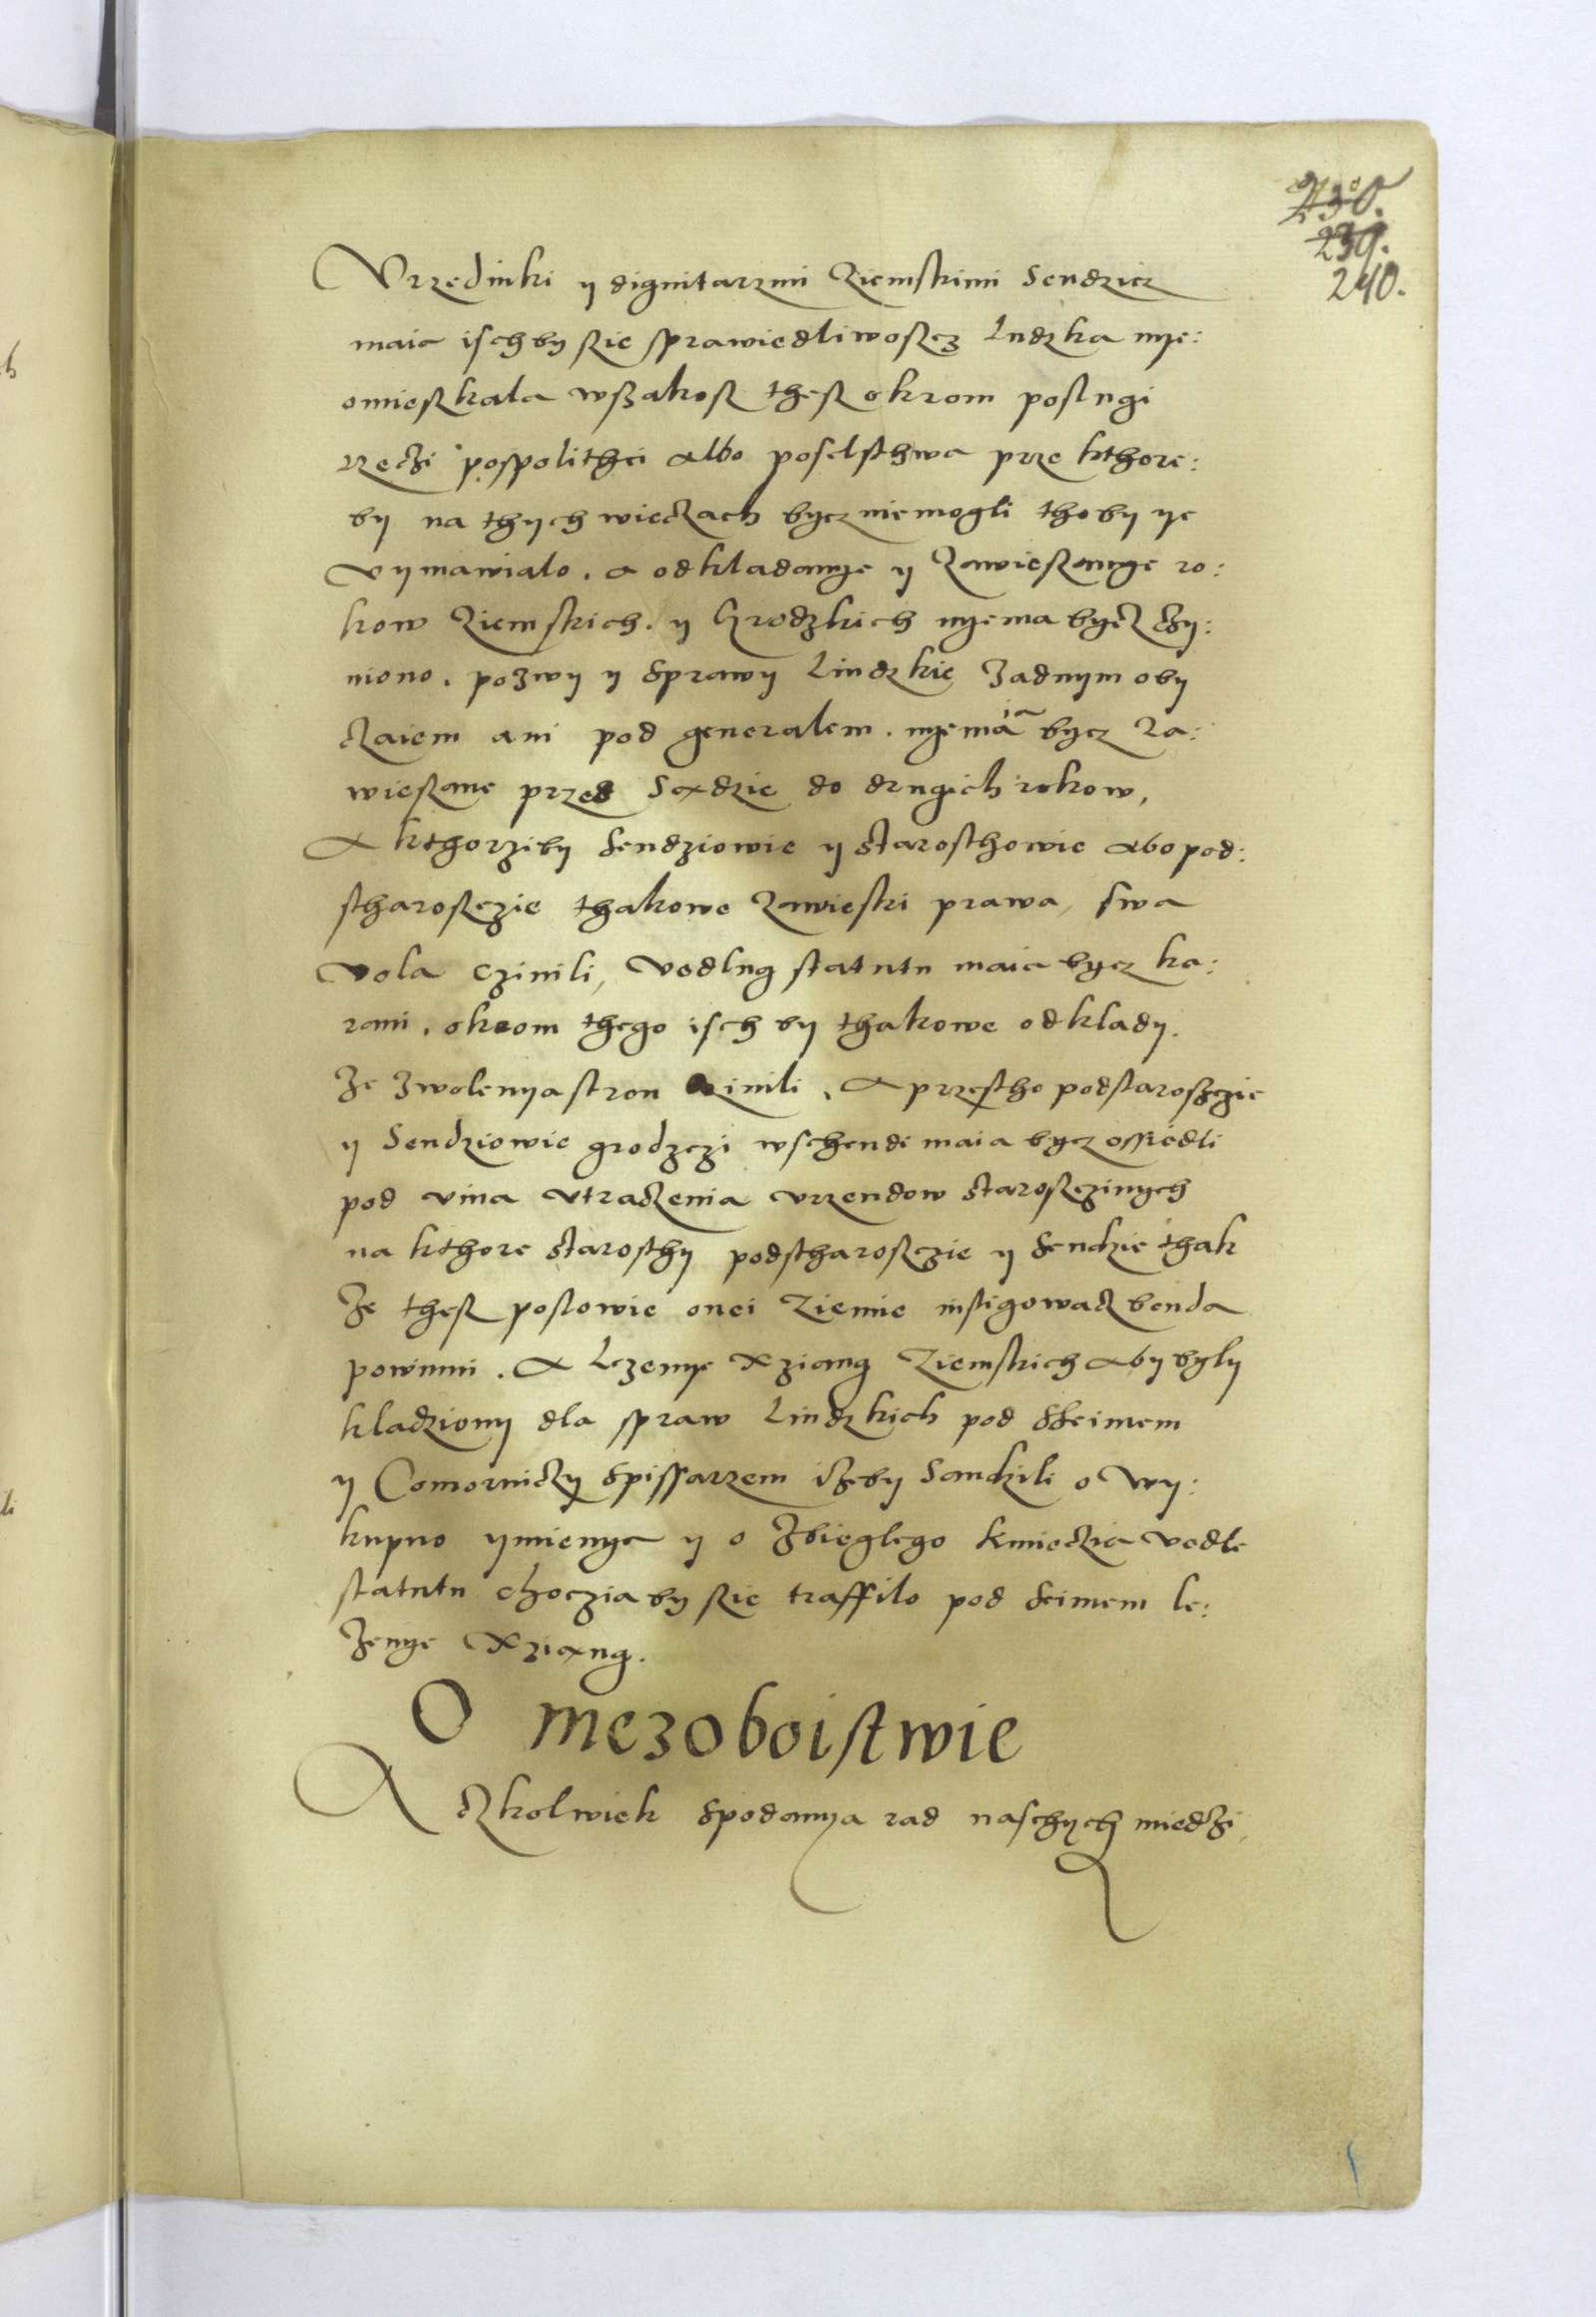 230.
239.
240.
Vrzedniki y dignitarzmi Ziemskimi Sendzicz
maia ischby szie sprawiedliwoszcz ludzka nye:
omieszkala wszakosz thesz okrom poslugi
rzeczi pospolithei albo poselsthwa prze kthore:
by na thych wieczach bycz niemogli thoby ye
vymawialo. a odkladanye y Zawieszanye ro:
kow Ziemskich. y Grodzkich nyema bycz czy:
niono. pozwy y Sprawy Liudzkie zadnym oby
czaiem ani pod generalem. nyemaia bycz Za:
wieszane przed Sadzie do drugich rokow,
A kthorziby Sendziowie y starosthowie abo pod:
stharoszczie thakowe Zawieski prawa, swa
vola czinili, vedlug statutu maia bycz ka:
rani. okrom thego isch by thakowe odklady.
Ze zwolenya stron czinili. A przestho podstaroszczie
y Sendziowie grodzczi wschende maia bycz ossiedli
pod vina vtraczenia vrzendow staroszczinych
na kthore starosthy podstharoszczie y Sendzie thak
Ze thesz poslowie onei Ziemie instigowacz benda
powinni. A Lezenye Xziang Ziemskich aby byly
kladziony dla spraw Liudzkich pod Seimem
y Comorniczy Spissarzem izeby Sandzili o wy:
kupno ymienya y o Zbieglego kmieczia vedle
statutu choczia by szie traffilo pod Seimem le:
Zenye Xziang.
O mezoboistwie
Aczkolwiek Spodanya rad naschych miedzi